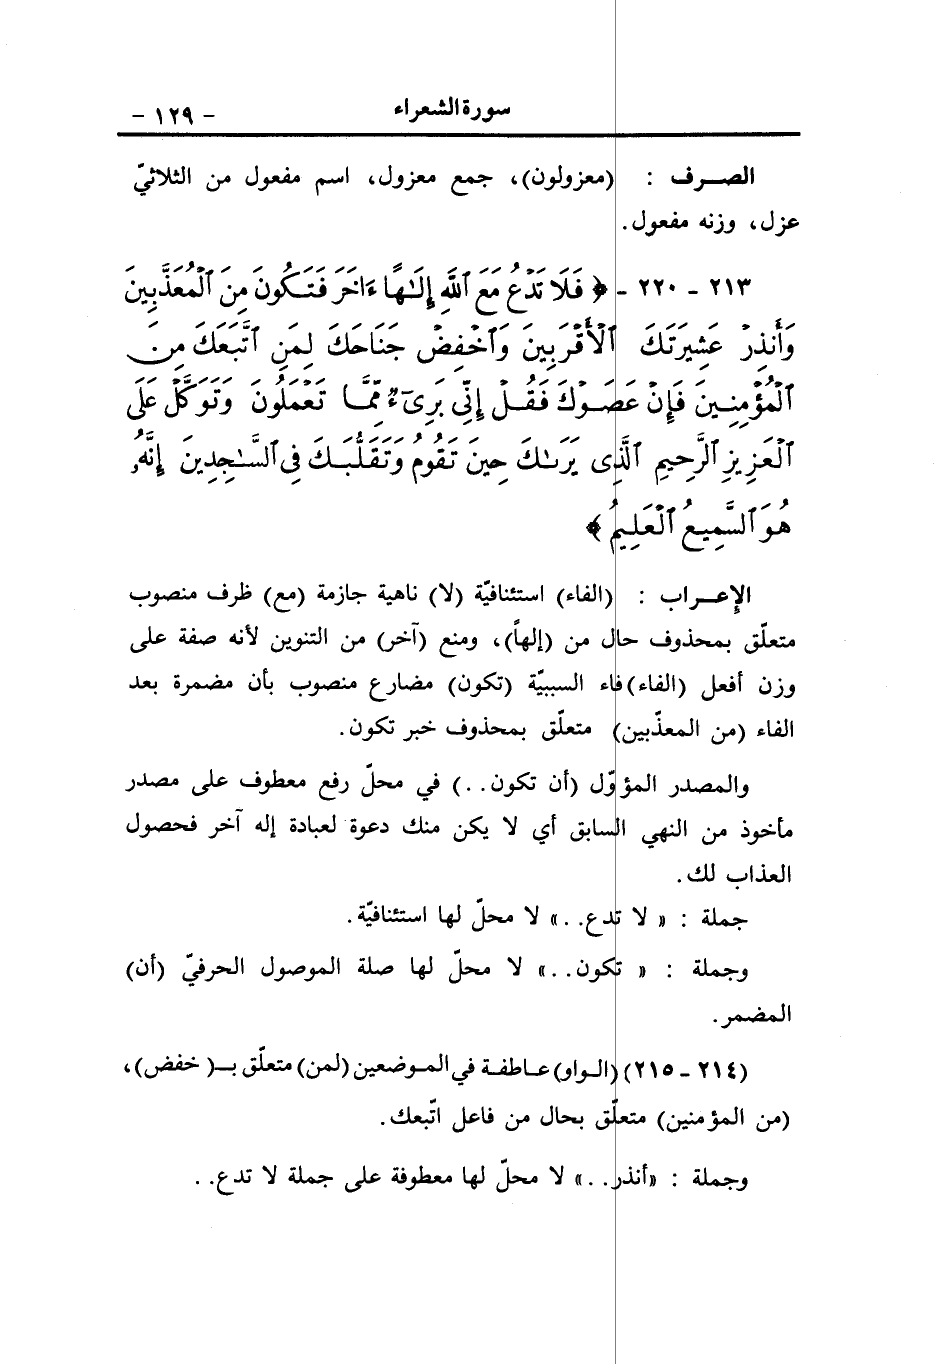 سورة الشعراء - ١٢٩ -
الصـرف : (معزولون)، جمع معزول، اسم مفعول من الثلاثيّ
عزل، وزنه مفعول.
٢١٣ - ٢٢٠ - ﴿ فَلَا تَدْعُ مَعَ ٱللَّهِ إِلَٰهًا ءَاخَرَ فَتَكُونَ مِنَ ٱلْمُعَذَّبِينَ
وَأَنذِرْ عَشِيرَتَكَ ٱلْأَقْرَبِينَ وَٱخْفِضْ جَنَاحَكَ لِمَنِ ٱتَّبَعَكَ مِنَ
ٱلْمُؤْمِنِينَ فَإِنْ عَصَوْكَ فَقُلْ إِنِّى بَرِىٓءٌ مِّمَّا تَعْمَلُونَ وَتَوَكَّلْ عَلَى
ٱلْعَزِيزِ ٱلرَّحِيمِ ٱلَّذِى يَرَىٰكَ حِينَ تَقُومُ وَتَقَلُّبَكَ فِى ٱلسَّٰجِدِينَ إِنَّهُۥ
هُوَ ٱلسَّمِيعُ ٱلْعَلِيمُ ﴾
الإعـراب : (الفاء) استئنافيّة (لا) ناهية جازمة (مع) ظرف منصوب
متعلّق بمحذوف حال من (إلهاً)، ومنع (آخر) من التنوين لأنه صفة على
وزن أفعل (الفاء) فاء السببيّة (تكون) مضارع منصوب بأن مضمرة بعد
الفاء (من المعذّبين) متعلّق بمحذوف خبر تكون.
والمصدر المؤوّل (أن تكون..) في محلّ رفع معطوف على مصدر
مأخوذ من النهي السابق أي لا يكن منك دعوة لعبادة إله آخر فحصول
العذاب لك.
جملة : « لا تدع..» لا محلّ لها استئنافيّة.
وجملة : « تكون..» لا محلّ لها صلة الموصول الحرفيّ (أن)
المضمر.
(٢١٤ - ٢١٥) (الواو) عاطفة في الموضعين (لمن) متعلّق بـ( خفض)،
(من المؤمنين) متعلّق بحال من فاعل اتّبعك.
وجملة : «أنذر..» لا محلّ لها معطوفة على جملة لا تدع..